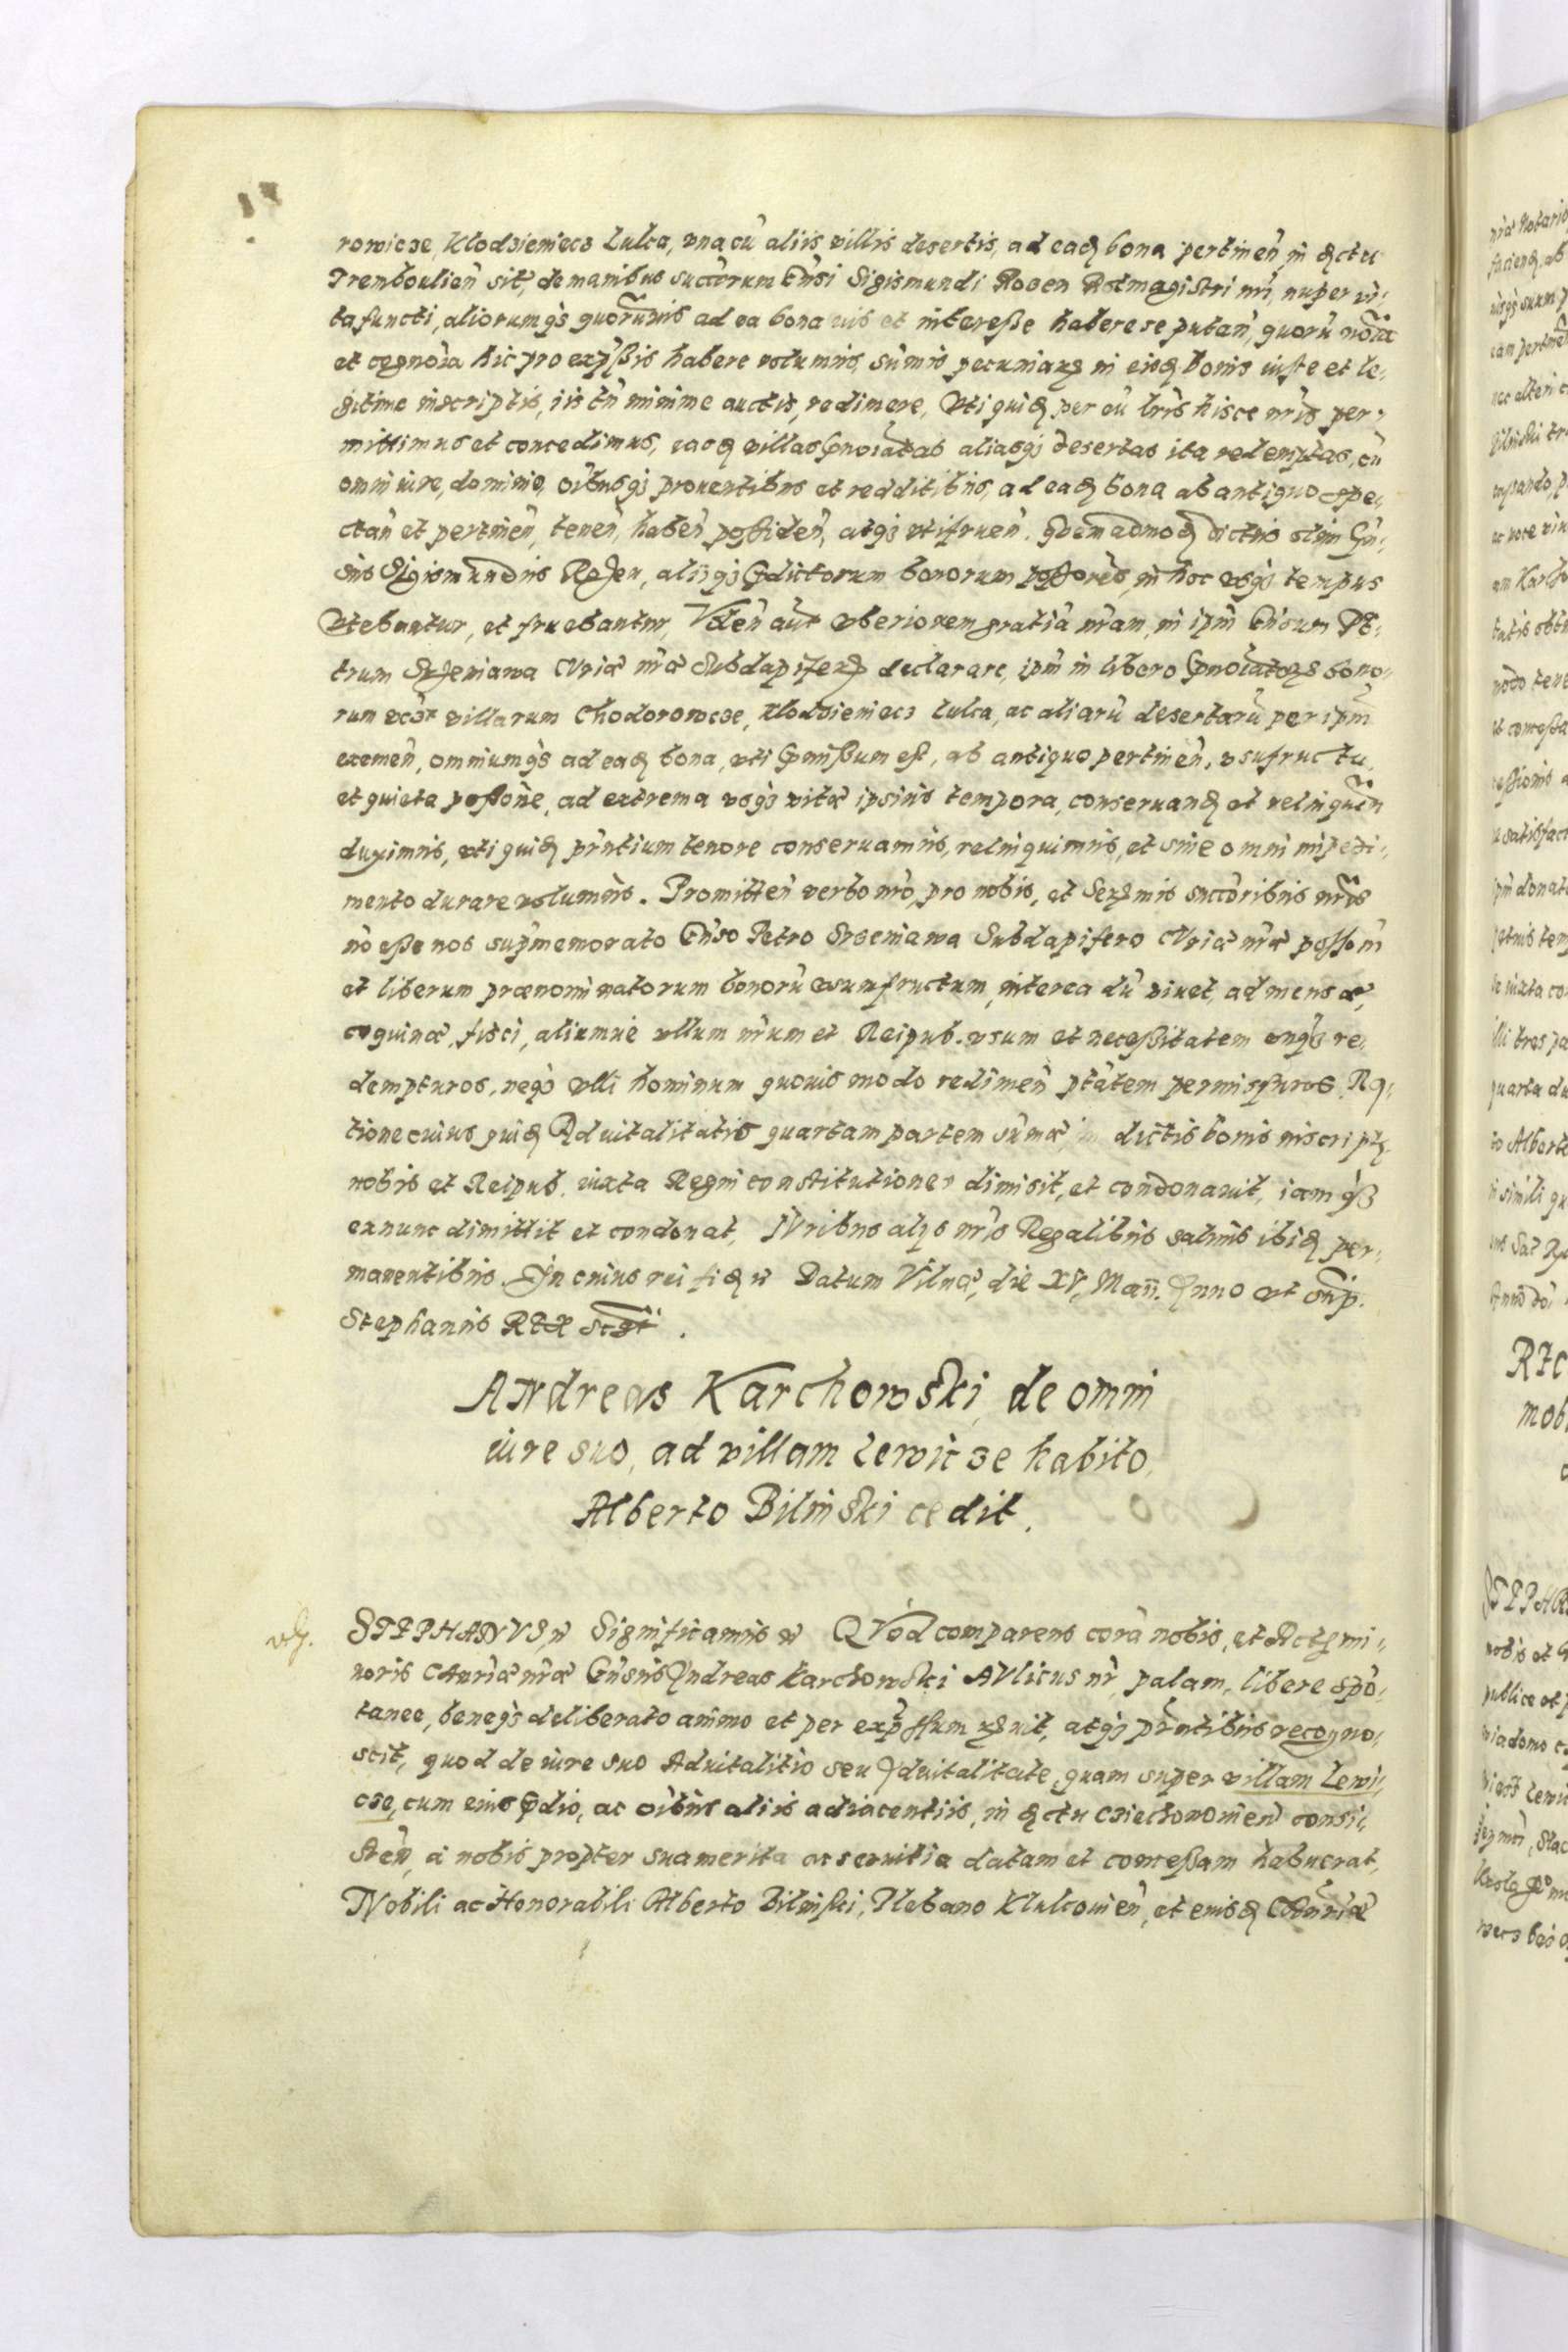 rowicze, Klodzieniecz Lulca, vna cũ aliis villis desertis, ad eadẽ bona pertineñ in dẽctu
Trembouliẽn sitẽ, de manibus succ̃rum Gñsi Sigismundi Rosen Rotmagistri nr̃i, nuper vi-
ta functi, aliorumqꝫ quorumuis ad ea bona ius et interesse habere se putañ, quorũ noĩa
et cognoĩa hic pro exp̃ssis habere volumus, sum̃is pecuniarꝫ in eisdẽ bonis iuste et le-
gitime inscriptis, iis tñ minime auctis, redimere, Vti quidẽ per eũ lr̃is hisce nr̃is per-
mittimus et concedimus, easdẽ villas p̃noĩatas aliasqꝫ desertas ita redemptas, cũ
omni iure, dominio, oĩbusqꝫ prouentibus et redditibus, ad eadẽ bona ab antiquo spe-
ctañ et pertineñ, teneñ, habeñ possideñ, atqꝫ vtifrueñ. Quemadmodũ dictus olim Gñ-
sus Sigismundus Rosen, aliiqꝫ p̃dictorum bonorum possores, in hoc vsqꝫ tempus
Vtebantur, et fruebantur, Voleñ aũt vberiorem gratiã nr̃am, in ipm̃ Gñsum Pe-
trum Srzeniawa Curiæ nr̃æ Subdapiferũ declarare, ipm̃ in libero p̃noĩatorꝫ bono-
rum vcꝫ villarum Chodorowcze, Klodzieniecz Lulca, ac aliarũ desertarũ per ipm̃
exemeñ, omniumqꝫ ad eadẽ bona, vti p̃missum est, ab antiquo pertineñ, vsufructu,
et quieta possõne, ad extrema vsqꝫ vitæ ipsius tempora, conseruandũ et relinqueñ
duximus, vti quidẽ pñtium tenore conseruamus, relinquimus, et sine omni impedi-
mento durare volumus. Promitteñ verbo nr̃o, pro nobis, et Serꝫmis succ̃oribus nr̃is
nõ esse nos sup̃memorato Gñso Petro Srzeniawa Subdapifero Curiæ nr̃æ possoñẽ
et liberum prænominatorum bonorũ vsumfructum, interea dũ viuet, ad mensæ,
coquinæ, fisci, aliumue vllum nr̃um et Reipub. vsum et necessitatem vnqꝫ re-
dempturos, neqꝫ vlli hominum quouis modo redimeñ ptãtem permissuros. Ra-
tione cuius quidẽ Aduitalitatis quartam partem sum̃æ in dictis bonis inscriptę
nobis et Reipub. iuxta Regni constitutiones dimisit, et condonauit, iamqꝫ
exnunc dimittit et condonat, Iuribus alys nr̃is Regalibus saluis ibidẽ per-
manentibus. In cuius rei fidẽ ꝛc Datum Vilnæ, die XV, Maii. Anno vt sup̃.
Stephanus REX sc̃pt̃.
ANdreas Karchowski, de omni
iure suo, ad villam Lewicze habito,
Alberto Bilinski cedit.
STEPHANVS, ꝛc Significamus ꝛc QVod comparens corã nobis, et Actꝫ mi-
noris Cancr̃iæ nr̃æ Gñsus Andreas Karchowski AVlicus nr̃, palam, libere spõ-
tanee, beneqꝫ deliberato animo et per exp̃ssum rꝫuit, atqꝫ pñtibus recogno-
scit, quod de iure suo Aduitalitio seu Aduitalitate, quam super villam Lewi-
cze, cum eius p̃dio, ac oĩbus aliis adiacentiis, in dẽctu Cziechonoviẽn consi-
steñ, à nobis propter sua merita ac seruitia datam et concessam habuerat,
Nobili ac Honorabili Alberto Bilinski, Plebano Klulcouiẽn, et eiusdẽ Cancr̃iæ